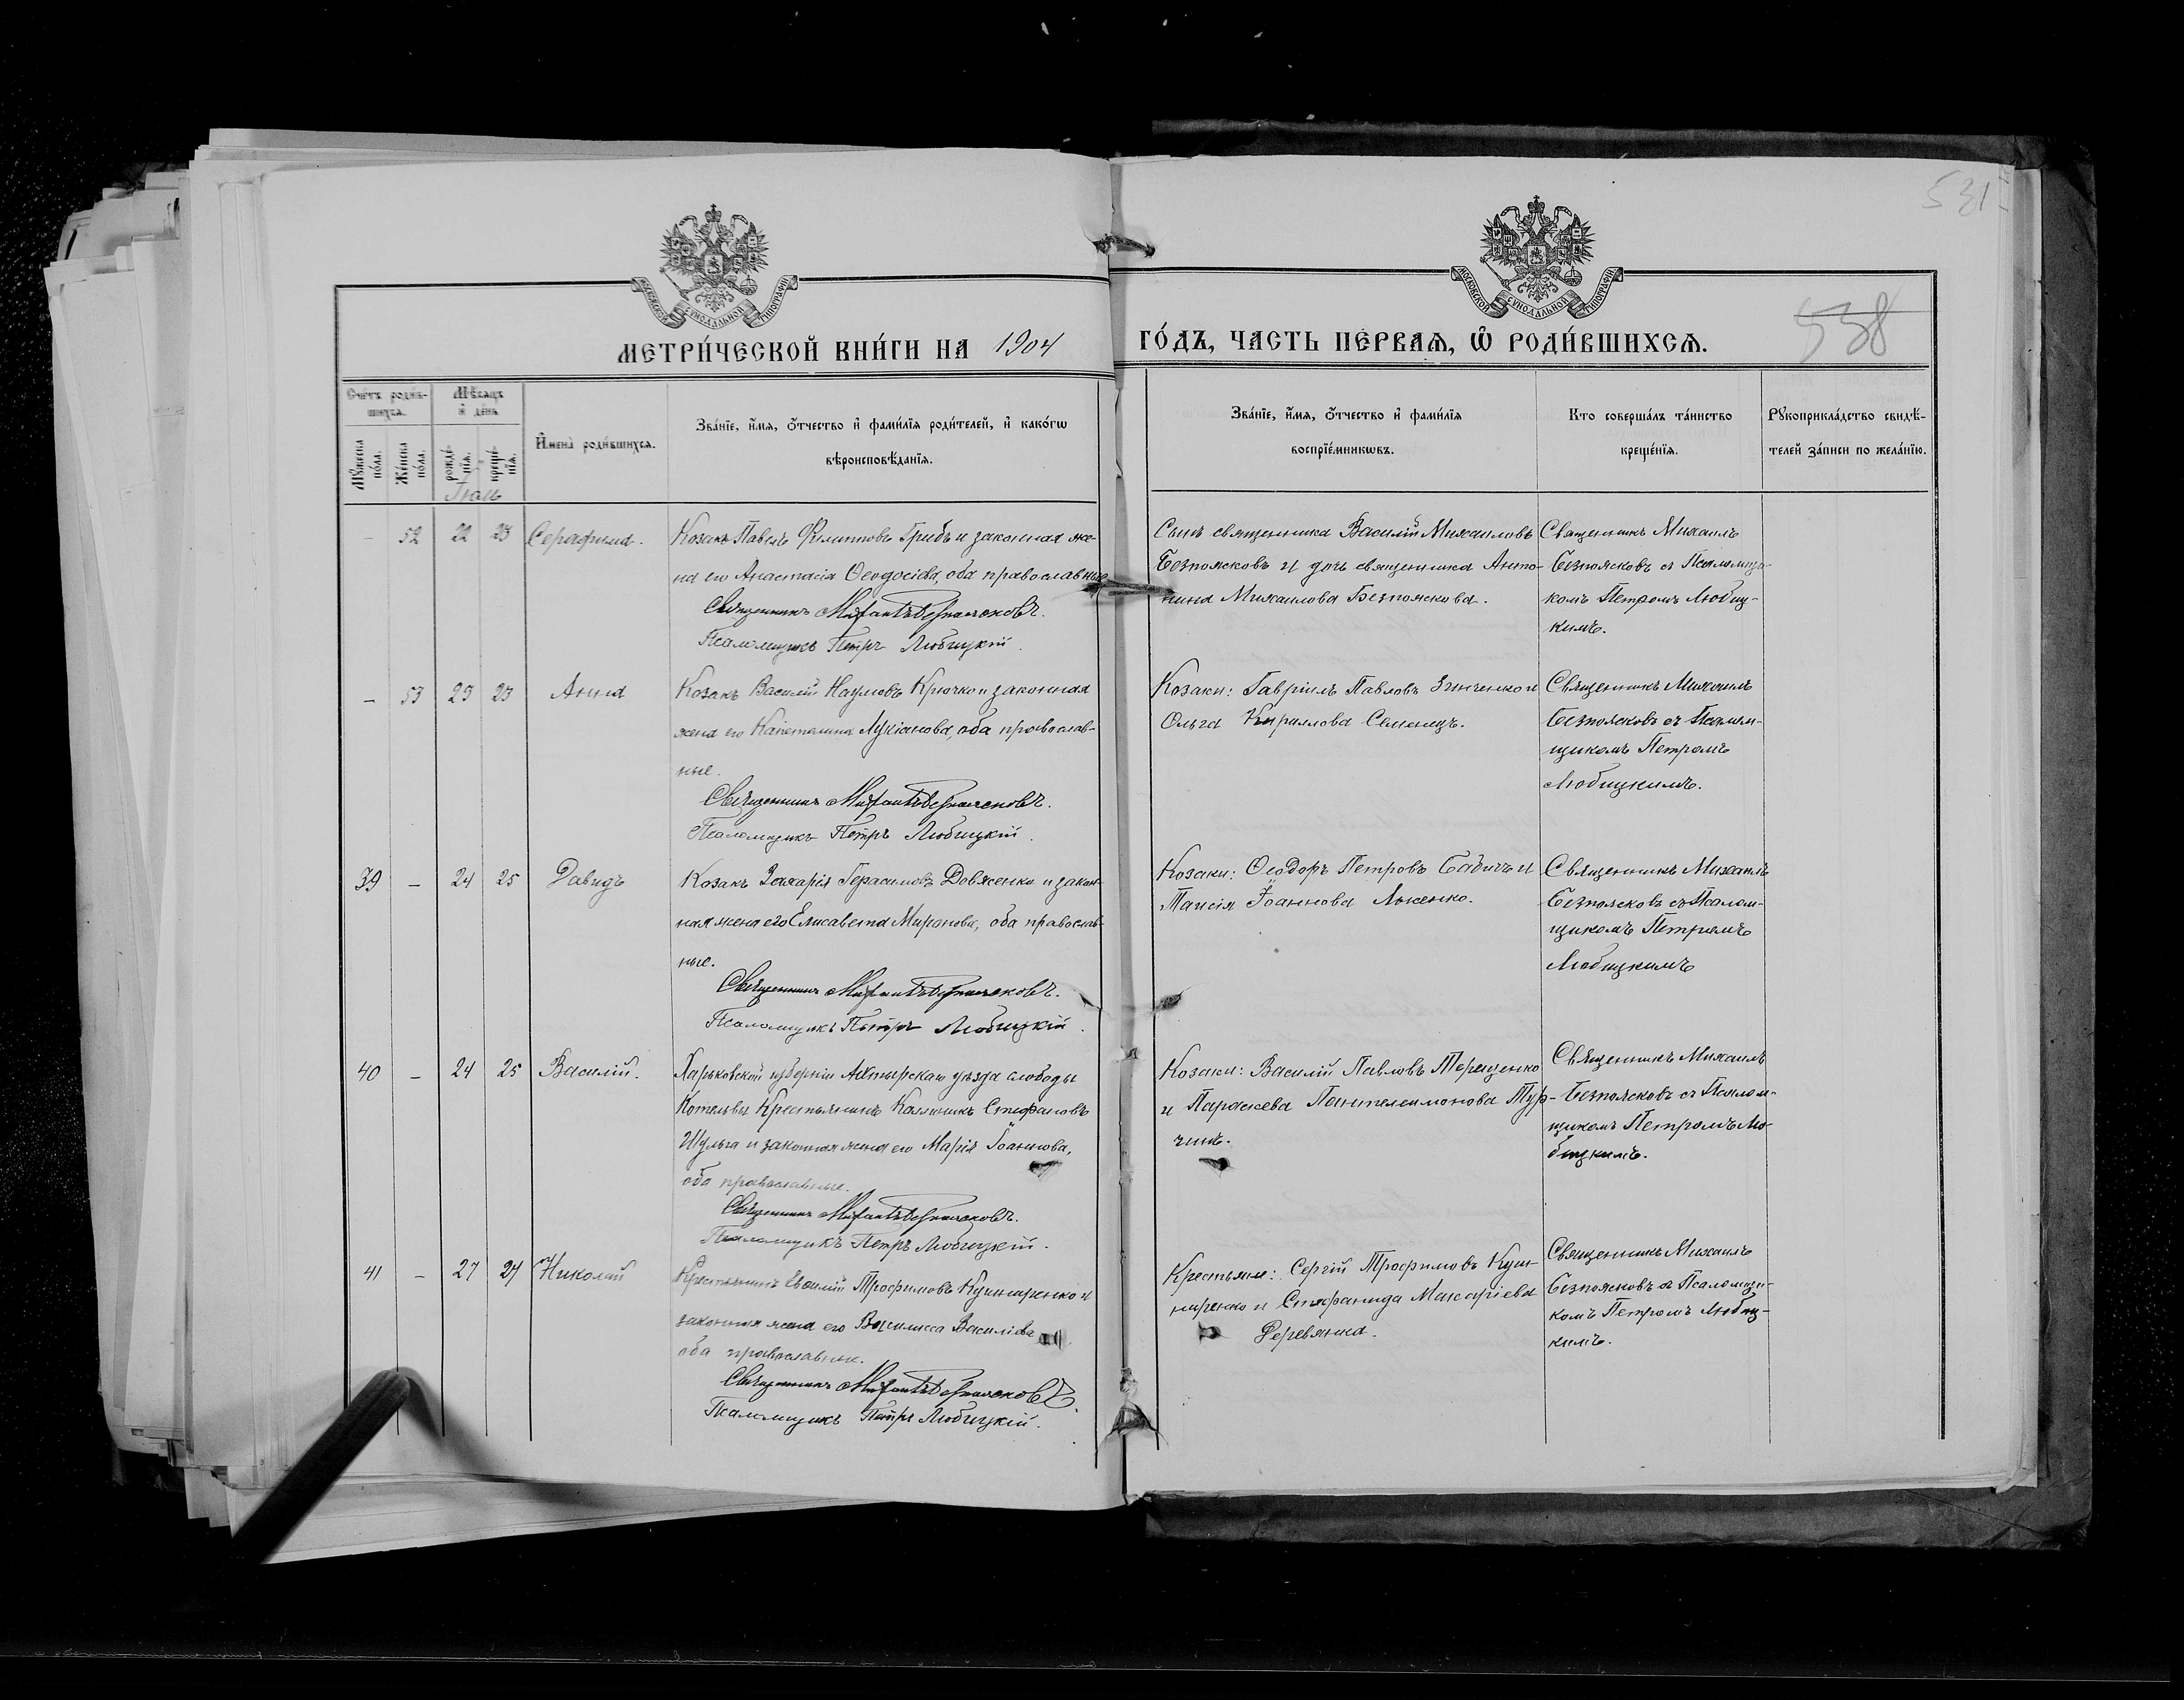 531
МОСКОВСКОЙ СУНОДАЛЬНОЙ ТИПОГРАФІИ
МОСКОВСКОЙ СУНОДАЛЬНОЙ ТИПОГРАФІИ
МЕТРИ́ЧЕСКОЙ КНИ́ГИ НА 1904
ГО́ДЪ, ЧАСТЬ ПЕ́РВАѦ, Ѡ҆ РОДИ́ВШИХСѦ.
538
Счётъ роди́в-
шихсѧ.
Мꙋ́жеска
по́ла.
Же́нска
по́ла.
Мѣ́сѧцъ
и҆ де́нь
рожде́-
нїѧ.
креще́-
нїѧ.
И҆мена̀ роди́вшихсѧ.
Зва́нїе, и҆́мѧ, ѻ҆́тчество и҆ фами́лїѧ роди́телей, и҆ како́гѡ
вѣроисповѣ́данїѧ.
Зва́нїе, и҆́мѧ, ѻ҆́тчество и҆ фами́лїѧ
воспрїе́мникѡвъ.
Кто соверша́лъ та́инство
креще́нїѧ.
Рꙋкоприкла́дство свидѣ́-
телей за́писи по жела́нїю.
– 52 22 23 Серафима.
Козакъ Павелъ Филипповъ Грибъ и законная же-
на его Анастасія Ѳеодосіева, оба православные
Священникъ Михаилъ Безпоясковъ.
Псаломщикъ Петръ Любицкій.
Сынъ священника Василій Михаиловъ
Безпоясковъ и дочь священника Анто-
нина Михаилова Безпояскова.
Священникъ Михаилъ
Безпоясковъ съ Псаломщи-
комъ Петромъ Любиц-
кимъ.
– 53 23 23 Анна
Козакъ Василій Наумовъ Крючко и законная
жена его Капетолина Лукіанова, оба православ-
ные.
Священникъ Михаилъ Безпоясковъ.
Псаломщикъ Петръ Любицкій.
Козаки: Гавріилъ Павловъ Зинченко и
Ольга Кириллова Семенецъ.
Священникъ Михаилъ
Безпоясковъ съ Псалом-
щикомъ Петромъ
Любицкимъ.
39 – 24 25 Давидъ
Козакъ Захарія Герасимовъ Довженко и закон-
ная жена его Елисавета Миронова, оба православ-
ные.
Священникъ Михаилъ Безпоясковъ.
Псаломщикъ Петръ Любицкій.
Козаки: Ѳеодоръ Петровъ Бабичъ и
Таисія Іоаннова
Священникъ Михаилъ
Безпоясковъ съ Псалом-
щикомъ Петромъ
Любицкимъ
40 – 24 25 Василій.
Харьковской губерніи Ахтырскаго уѣзда слободы
Котельвы Крестьянинъ Каллиникъ Стефановъ
Шульга и законная жена его Марія Іоаннова,
оба православные.
Священникъ Михаилъ Безпоясковъ.
Псаломщикъ Петръ Любицкій.
Козаки: Василій Павловъ Терещенко
и Параскева Пантелеимонова Тур-
чинъ.
Священникъ Михаилъ
Безпоясковъ съ Псалом-
щикомъ Петромъ Лю-
бицкимъ.
41 – 27 27 Николай
Крестьянинъ Трофимовъ Кушниренко и
законная жена его Василисса Василіева
оба православные.
Священникъ Михаилъ Безпоясковъ.
Псаломщикъ Петръ Любицкій.
Крестьяне: Сергій Трофимовъ Куш-
ниренко и Стефанида Макаріева
Деревянка.
Священникъ Михаилъ
Безпоясковъ съ Псаломщи-
комъ Петромъ Любиц-
кимъ.